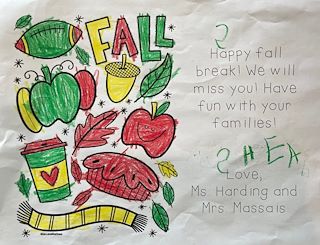 FALL
S
Happy fall
break! We will
miss you! Have
fun with your
families!
SHEA
Love,
Ms. Harding and
Mrs. Massais